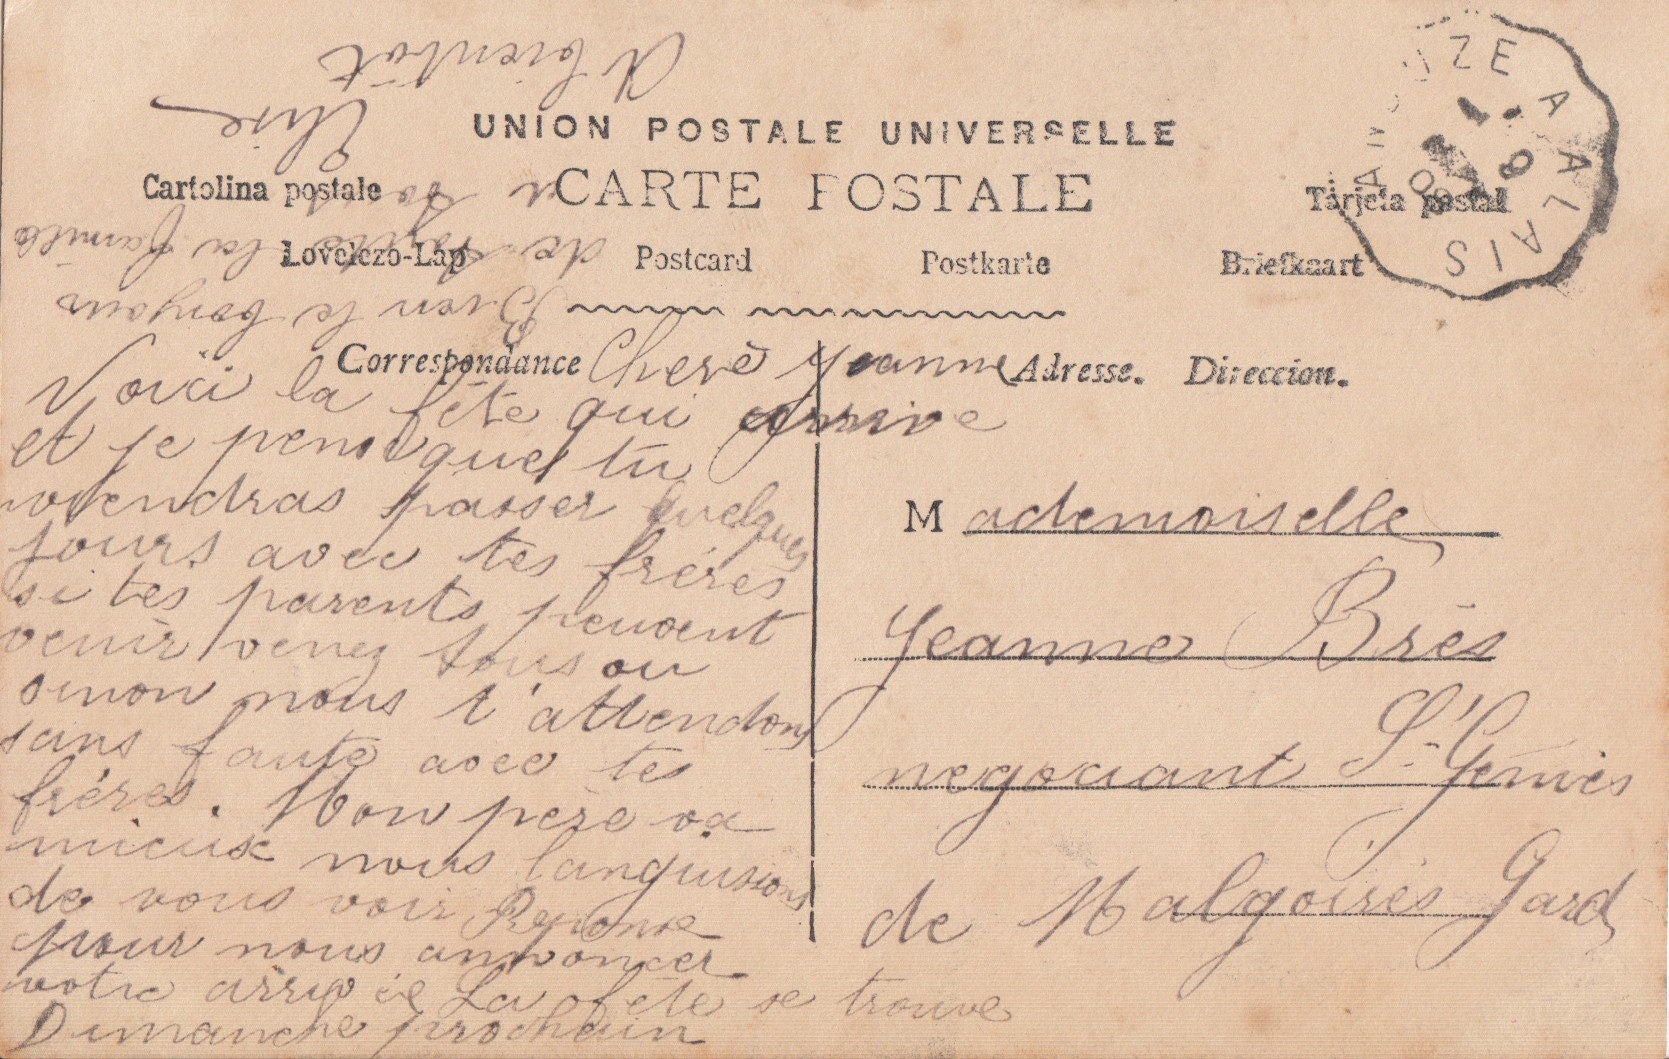 UNION POSTALE UNIVERSELLE
CARTE POSTALE
Cartolina postale
Tarjeta postal
Levelezo-Lap
Postcard
Postkarte
Briefkaart
Correspondance
Adresse. Direccion.
A ALAIS
Cherè Jeanne
Voici la fête qui arrive
et je pense que tu
viendras passer quelques
jours avec tes frères
si tes parents peuvent
venir venez tous ou
sinon nous t'attendons
sans faute avec tes
frères. Mon père va
mieux nous languissons
de vous voir Reponse
pour nous annoncer
votre arrivée La fete se trouve
Dimanche prochain
Bien le bonjour
de toute la famille
a tous
A bientôt
Mademoiselle
Jeanne Brès
negociant St Geniès
de Malgoirès Gard